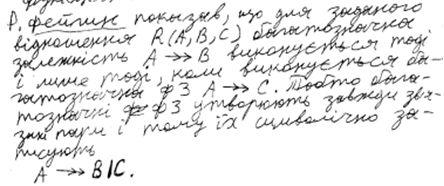 Р. Фейгин показав, що для заданого
відношення R(A,B,C) багатозначна
залежність A →→ B виконується тоді
і лише тоді, коли виконується ба-
гатозначна ФЗ A →→ C. Тобто бага-
тозначні ФЗ утворюють завжди звя-
зні пари і тому їх символічно за-
писують
A →→ B|C.